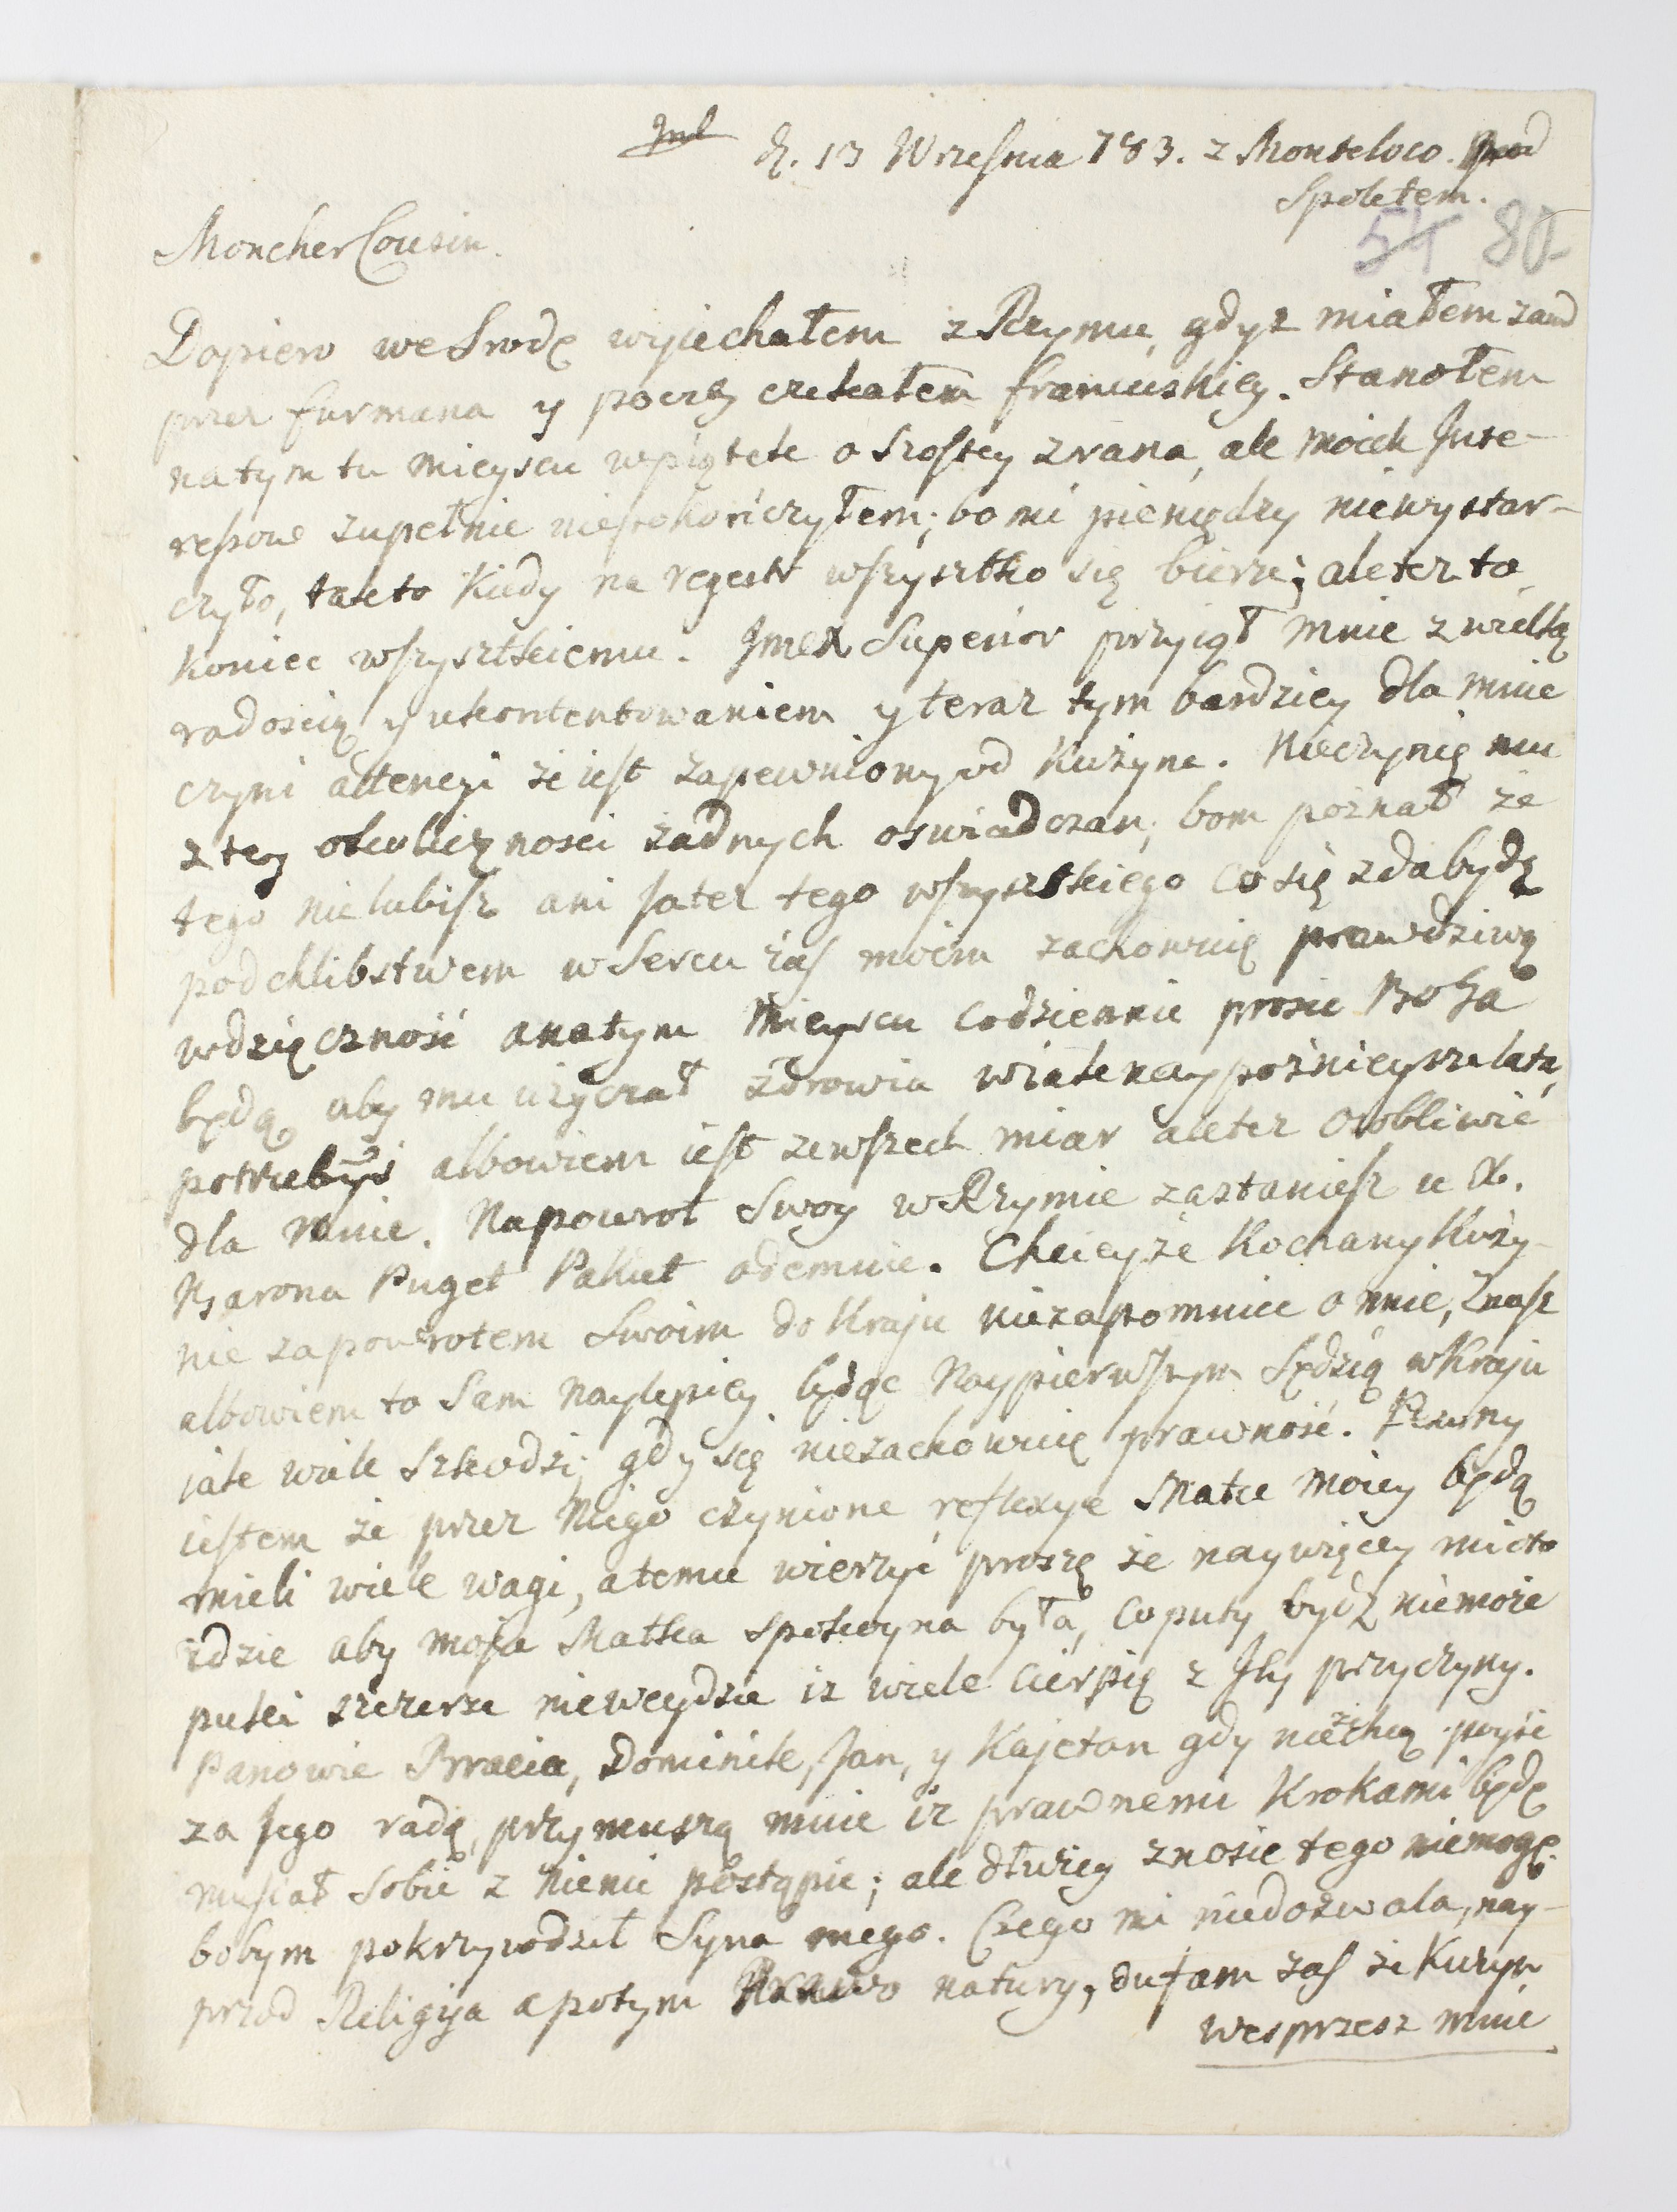 d. 13 Września 783. z Monteluco. pod
Spoletem.
54 82
Moncher Cousin.
Dopiero we Srodę wyjechałem z Rzymu, gdyż miałem zawd
przez furmana y poczty czekałem francuskiey. Stanołem
na tym tu mieyscu wpiątek o szostey zrana, ale moich Inte-
ressow zupełnie nieskończyłem; bo mi pieniędzy niewystar-
czyło, takto kiedy na regestr wszysztko się bierze; ale też to
koniec wszysztkiemu. Superior przyiął mnie zwielką
radoscią y ukontentowaniem y teraz tym bardziey dla mnie
czyni attencyi że iest zapewniony od Kużyna. Nieczynię mu
z tey okolicznosci żadnych oswiadczan; bom poznał że
tego nielubisz ani ja też tego wszysztkiego co się zda bydź
podchlibstwem w Sercu zaś moim zachownię prawdziwą
wdzięczność a na tym Mieyscu codziennie prosić Boga
będę, aby mu użyczał zdrowia w iak naypoźnieysze lata,
potrzebyś albowiem iest zewszech miar ale też osobliwie
dla mnie. Na powrot Swoy w Rzymie zastaniesz u X.
Barona Puget Pakiet odemnie. Chcieyże Kochany Kuzy-
nie zapowrotem Swoim do Kraju niezapomniec o mnie, Znasz
albowiem to Sam naylepiey będąc Naypierwszym Sędzią w Kraju
jak wiele Szkodzi, gdy się niezachownię prawność. Pewny
iestem że przez Niego czynione reflexye Matce moiey będą
mieli wiele wagi, a temu wierzyć proszę że naywięcey mi oto
idzie aby moja Matka spokoyna była, co puty bydź niemoże
puki szczerze nieweydzie iż wiele cierpię z Jey przyczyny.
Panowie Bracia, Dominik, Jan, y Kajetan gdy niezechcą pojść
za Jego radą, przymuszą mnie iż prawnemi Krokami będę
musiał Sobie z niemi postąpić; ale dłużey znosić tego niemogę.
bobym pokrzywdził Syna mego. Czego mi niedozwala, nay-
przod Religija a potym Prawo natury, dufam zaś że Kuzyn
wesprzesz mnie